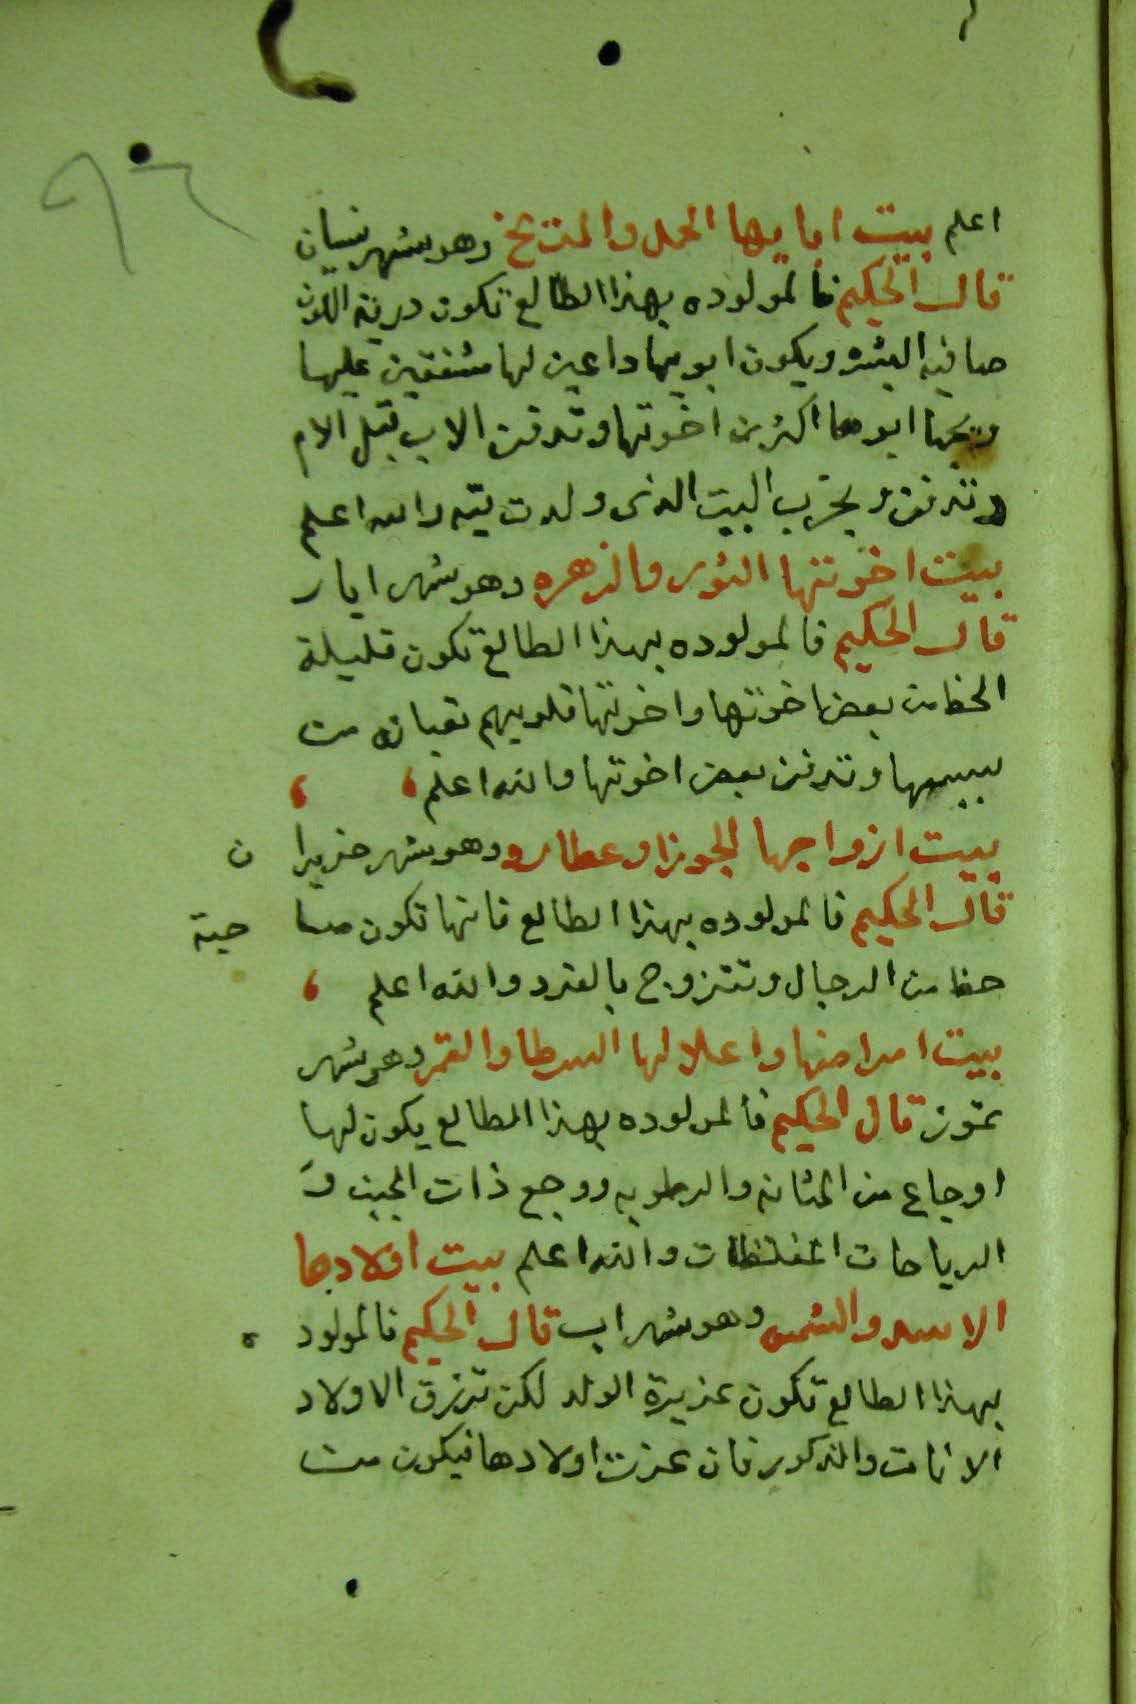 ٩٢
اعلم بيت ابايها الحمل والمتريخ وهو شهر نيسان
قال الحكيم فالمولوده بهذا الطالع تكون درية اللون
صافيه البشره ويكون ابويها داعين لها مشفقين عليها
ويحبها ابوها اكثر من اخوتها وتدفن الاب قبل الام
وتدفن ويخرب البيت الذى ولدت فيه والله اعلم
بيت اخوتها الثور والزهره وهو شهر ايار
قال الحكيم فالمولوده بهذا الطالع تكون قليلة
الحظ من بعض اخوتها واخوتها قلوبهم تعبانه من
سببها وتدفن بعض اخوتها والله اعلم
بيت ازواجها الجوزا وعطارد وهو شهر حزيرا ن
قال الحكيم فالمولوده بهذا الطالع فانها تكون صا حبة
حظ من الرجال وتتزوج بالفرد والله اعلم
بيت امراضها واعلالها السرطا والقمر وهو شهر
تموز قال الحكيم فالمولوده بهذا المطالع يكون لها
اوجاع من المثانه والرطوبه ووجع ذات الجنب و
الرياحات الغلظات والله اعلم بيت اولادها
الاسد والشمس وهو شهر اب قال الحكيم فالمولود ه
بهذا الطالع تكون عزيزة الولد لكن ترزق الاولاد
الاناث والذكور فان عزت اولادها فيكون من